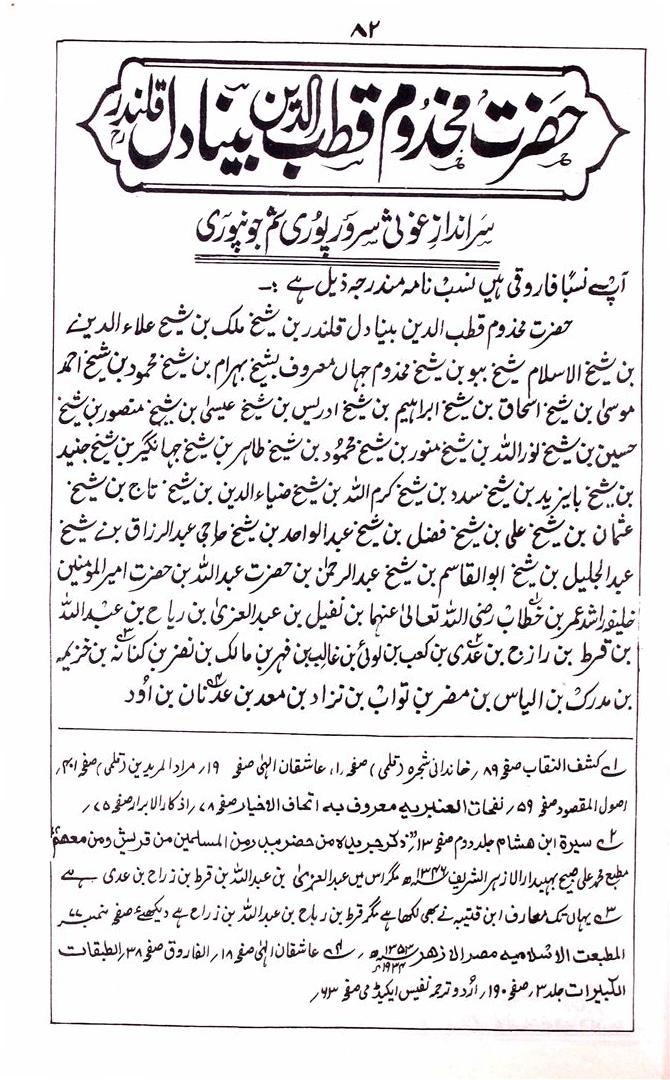 ۸۲
حضرت مخدوم قطب الدین بینا دل قلندرؒ
سرانداز غوثی سرور پوری ثم جونپوری
آپ نسباً فاروقی ہیں نسب نامہ مندرجہ ذیل ہے :۔
حضرت مخدوم قطب الدین بینا دل قلندر بن شیخ ملک بن شیخ علاء الدین
بن شیخ الاسلام شیخ ببو بن شیخ مخدوم جہاں معروف بشیخ بہرام بن شیخ محمود بن شیخ احمد
موسیٰ بن شیخ اسحاق بن شیخ ابراہیم بن شیخ ادریس بن شیخ عیسیٰ بن شیخ منصور بن شیخ
حسین بن شیخ نور اللہ بن شیخ منور بن شیخ محمود بن شیخ طاہر بن شیخ جہانگیر بن شیخ جنید
بن شیخ بایزید بن شیخ سدد بن شیخ کرم اللہ بن شیخ ضیاء الدین بن شیخ تاج بن شیخ
عثمان بن شیخ علی بن شیخ فضل بن شیخ عبد الواحد بن شیخ حاجی عبد الرزاق بن شیخ
عبد الجلیل بن شیخ ابو القاسم بن شیخ عبد الرحمٰن بن حضرت عبد اللہ بن حضرت امیر المومنین
خلیفہ راشد عمر بن خطاب۱؎ رضی اللہ تعالیٰ عنہما بن نفیل بن عبد العزیٰ بن ریاح بن عبد اللہ
بن قرط بن رازح بن عدی۲؎ بن کعب بن لوئی بن غالب بن فہر بن مالک بن نضر بن کنانہ۳؎ بن خزیمہ
بن مدرک بن الیاس بن مضر بن تواب بن نزاد بن معد بن عدنان۴؎ بن اُود
۱؎ کشف النقاب صفحہ ۸۹، خاندانی شجرہ (قلمی) صفحہ ۱، عاشقان الٰہی صفحہ ۱۹، مراد المریدین (قلمی) صفحہ ۴۰۱،
اصول المقصود صفحہ ۵۹، نفحات العنبریہ معروف بہ اتحاف الاخیار صفحہ ۷۸، اذکار الابرار صفحہ ۷۵،
۲؎ سیرۃ ابن ہشام جلد دوم صفحہ ۱۳ من حضر بدر من المسلمین من قریش ومن معھم
مطبع محمد علی صبیح بمیدار الازہر الشریف ۱۳۴۶ھ مگر اس میں عبد العزیٰ بن عبد اللہ بن قرط بن زراح بن عدی ہے
۳؎ یہاں تک معارف ابن قتیبہ نے بھی لکھا ہے مگر قرط بن رباح بن عبد اللہ بن زراح ہے دیکھئے صفحہ نمبر ۷۷
المطبعت الاسلامیہ مصر الازھر ۱۳۵۳ھ ۱۹۳۴ء، ۴؎ عاشقان الٰہی صفحہ ۱۸، الفاروق صفحہ ۳۸، الطبقات
الکبیرات جلد ۳، صفحہ ۱۹۰، اُردو ترجمہ نفیس اکیڈمی صفحہ ۶۳،